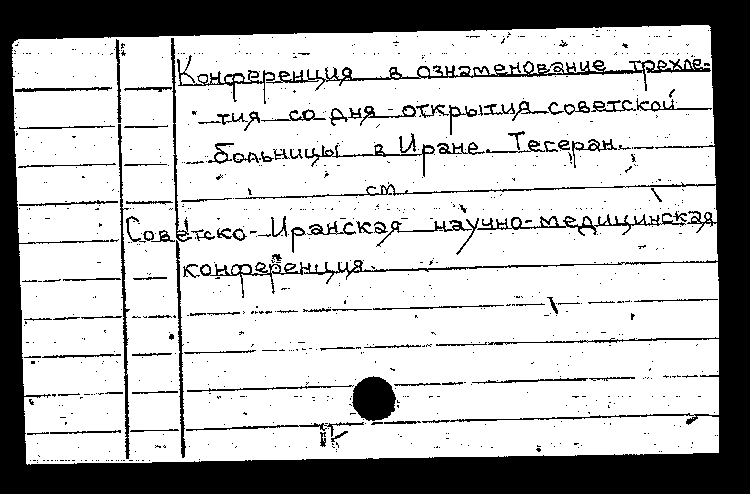 Конференция в ознаменование трехле-
тия со дня открытия советской
больницы в Иране. Тегеран.
см.
Советско-Иранская научно-медицинская
конференция.